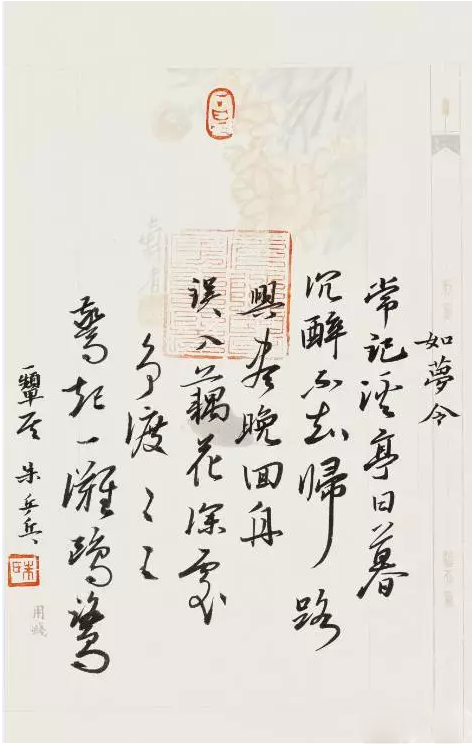 如夢令
常記溪亭日暮
沉醉不知歸路
興盡晚回舟
誤入藕花深處
爭渡〻〻
驚起一灘鷗鷺
朱兵兵
用箋